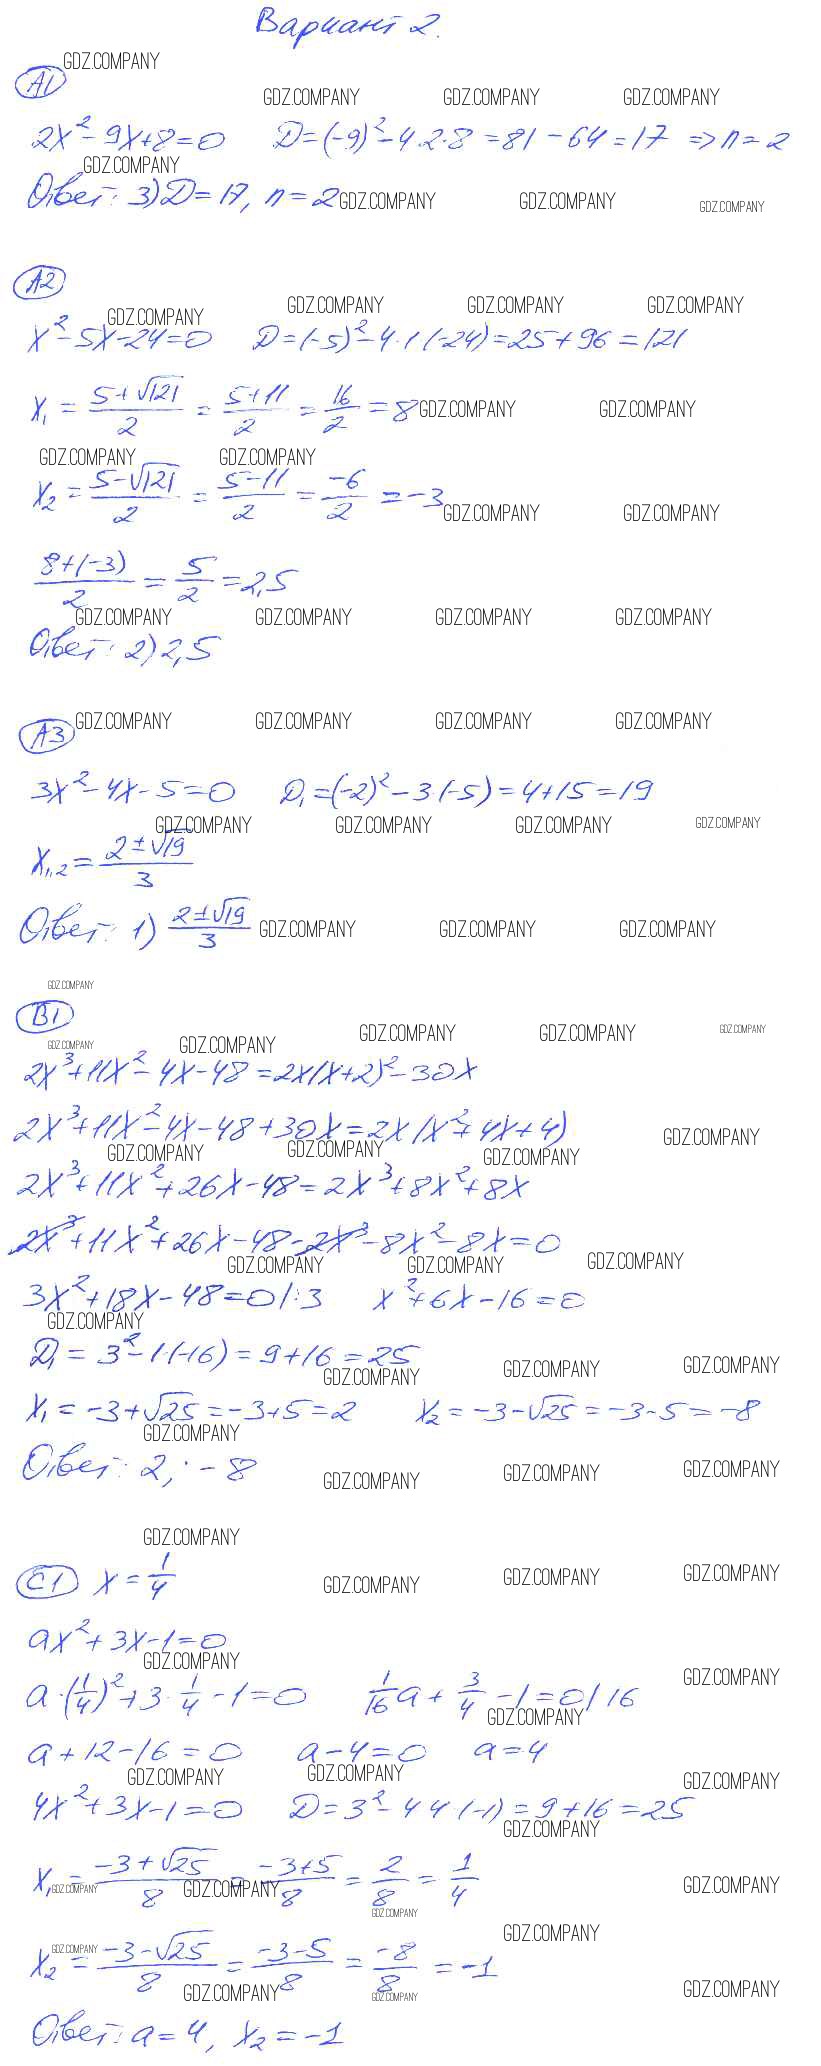 Вариант 2.
GDZ.COMPANY
A1
GDZ.COMPANY GDZ.COMPANY GDZ.COMPANY
2x²-9x+8=0 D=(-9)²-4·2·8=81-64=17 => n=2
GDZ.COMPANY
Ответ: 3) D=17, n=2 GDZ.COMPANY GDZ.COMPANY GDZ.COMPANY
A2
GDZ.COMPANY GDZ.COMPANY GDZ.COMPANY GDZ.COMPANY
x²-5x-24=0 D=(-5)²-4·1·(-24)=25+96=121
x₁ = (5+√121)/2 = (5+11)/2 = 16/2 = 8 GDZ.COMPANY GDZ.COMPANY
GDZ.COMPANY GDZ.COMPANY
x₂ = (5-√121)/2 = (5-11)/2 = -6/2 = -3 GDZ.COMPANY GDZ.COMPANY
(8+(-3))/2 = 5/2 = 2,5
GDZ.COMPANY GDZ.COMPANY GDZ.COMPANY GDZ.COMPANY
Ответ: 2) 2,5
A3 GDZ.COMPANY GDZ.COMPANY GDZ.COMPANY GDZ.COMPANY
3x²-4x-5=0 D₁=(-2)²-3·(-5)=4+15=19
GDZ.COMPANY GDZ.COMPANY GDZ.COMPANY GDZ.COMPANY
x₁,₂ = (2±√19)/3
Ответ: 1) (2±√19)/3 GDZ.COMPANY GDZ.COMPANY GDZ.COMPANY
GDZ.COMPANY
B1
GDZ.COMPANY GDZ.COMPANY GDZ.COMPANY GDZ.COMPANY GDZ.COMPANY
2x³+11x²-4x-48=2x(x+2)²-30x
2x³+11x²-4x-48+30x=2x(x²+4x+4) GDZ.COMPANY
GDZ.COMPANY GDZ.COMPANY GDZ.COMPANY
2x³+11x²+26x-48=2x³+8x²+8x
2x³+11x²+26x-48-2x³-8x²-8x=0
GDZ.COMPANY GDZ.COMPANY GDZ.COMPANY
3x²+18x-48=0 |:3 x²+6x-16=0
GDZ.COMPANY
D₁ = 3²-1·(-16)=9+16=25
GDZ.COMPANY GDZ.COMPANY GDZ.COMPANY
x₁ = -3+√25 = -3+5=2 x₂ = -3-√25 = -3-5=-8
GDZ.COMPANY
Ответ: 2; -8
GDZ.COMPANY GDZ.COMPANY GDZ.COMPANY
GDZ.COMPANY
C1 x = 1/4 GDZ.COMPANY GDZ.COMPANY GDZ.COMPANY
ax²+3x-1=0
GDZ.COMPANY GDZ.COMPANY
a·(1/4)²+3·1/4-1=0 1/16a+3/4-1=0 |·16
GDZ.COMPANY
a+12-16=0 a-4=0 a=4
GDZ.COMPANY GDZ.COMPANY GDZ.COMPANY
4x²+3x-1=0 D=3²-4·4·(-1)=9+16=25
GDZ.COMPANY
x₁ = (-3+√25)/8 = (-3+5)/8 = 2/8 = 1/4
GDZ.COMPANY GDZ.COMPANY GDZ.COMPANY
GDZ.COMPANY
GDZ.COMPANY GDZ.COMPANY
x₂ = (-3-√25)/8 = (-3-5)/8 = -8/8 = -1
GDZ.COMPANY GDZ.COMPANY GDZ.COMPANY
Ответ: a=4, x₂=-1